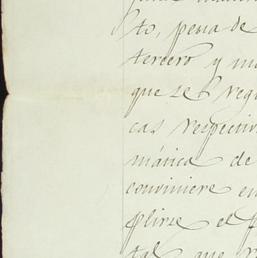 to, pena de
tercero y
que se
cas respectiv
mática de
conviniere en
plirse el
tal que